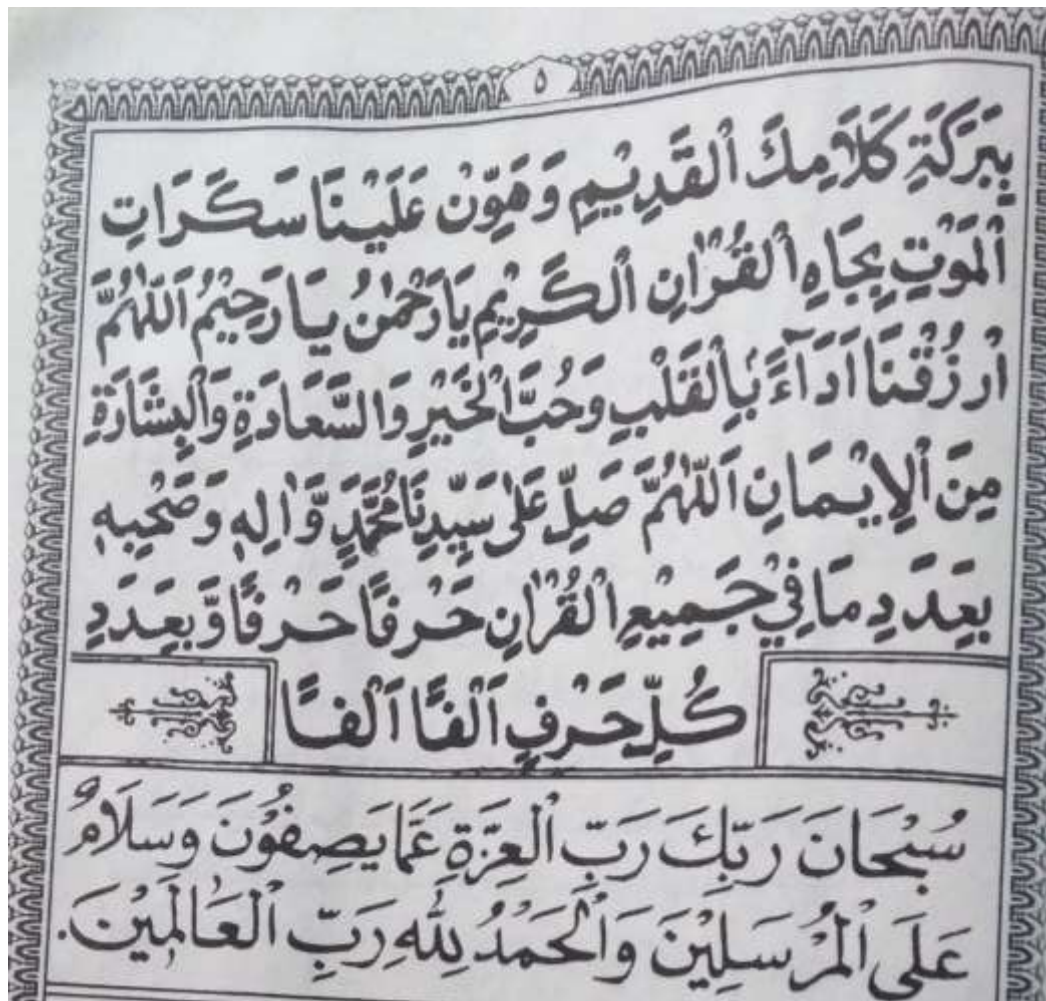 ٥
بِبَرَكَةِ كَلَامِكَ الْقَدِيْمِ وَهَوِّنْ عَلَيْنَا سَكَرَاتِ
الْمَوْتِ بِجَاهِ الْقُرْاٰنِ الْكَرِيْمِ يَا رَحْمٰنُ يَا رَحِيْمُ اَللّٰهُمَّ
ارْزُقْنَا اَدَآءً بِالْقَلْبِ وَحُبَّ الْخَيْرِ وَالسَّعَادَةِ وَالْبِشَارَةِ
مِنَ الْاِيْمَانِ اَللّٰهُمَّ صَلِّ عَلٰى سَيِّدِنَا مُحَمَّدٍ وَّاٰلِهٖ وَصَحْبِهٖ
بِعَدَدِ مَا فِيْ جَمِيْعِ الْقُرْاٰنِ حَرْفًا حَرْفًا وَّبِعَدَدِ
كُلِّ حَرْفٍ اَلْفًا اَلْفًا
سُبْحَانَ رَبِّكَ رَبِّ الْعِزَّةِ عَمَّا يَصِفُوْنَ وَسَلَامٌ
عَلَى الْمُرْسَلِيْنَ وَالْحَمْدُ لِلّٰهِ رَبِّ الْعَالَمِيْنَ.